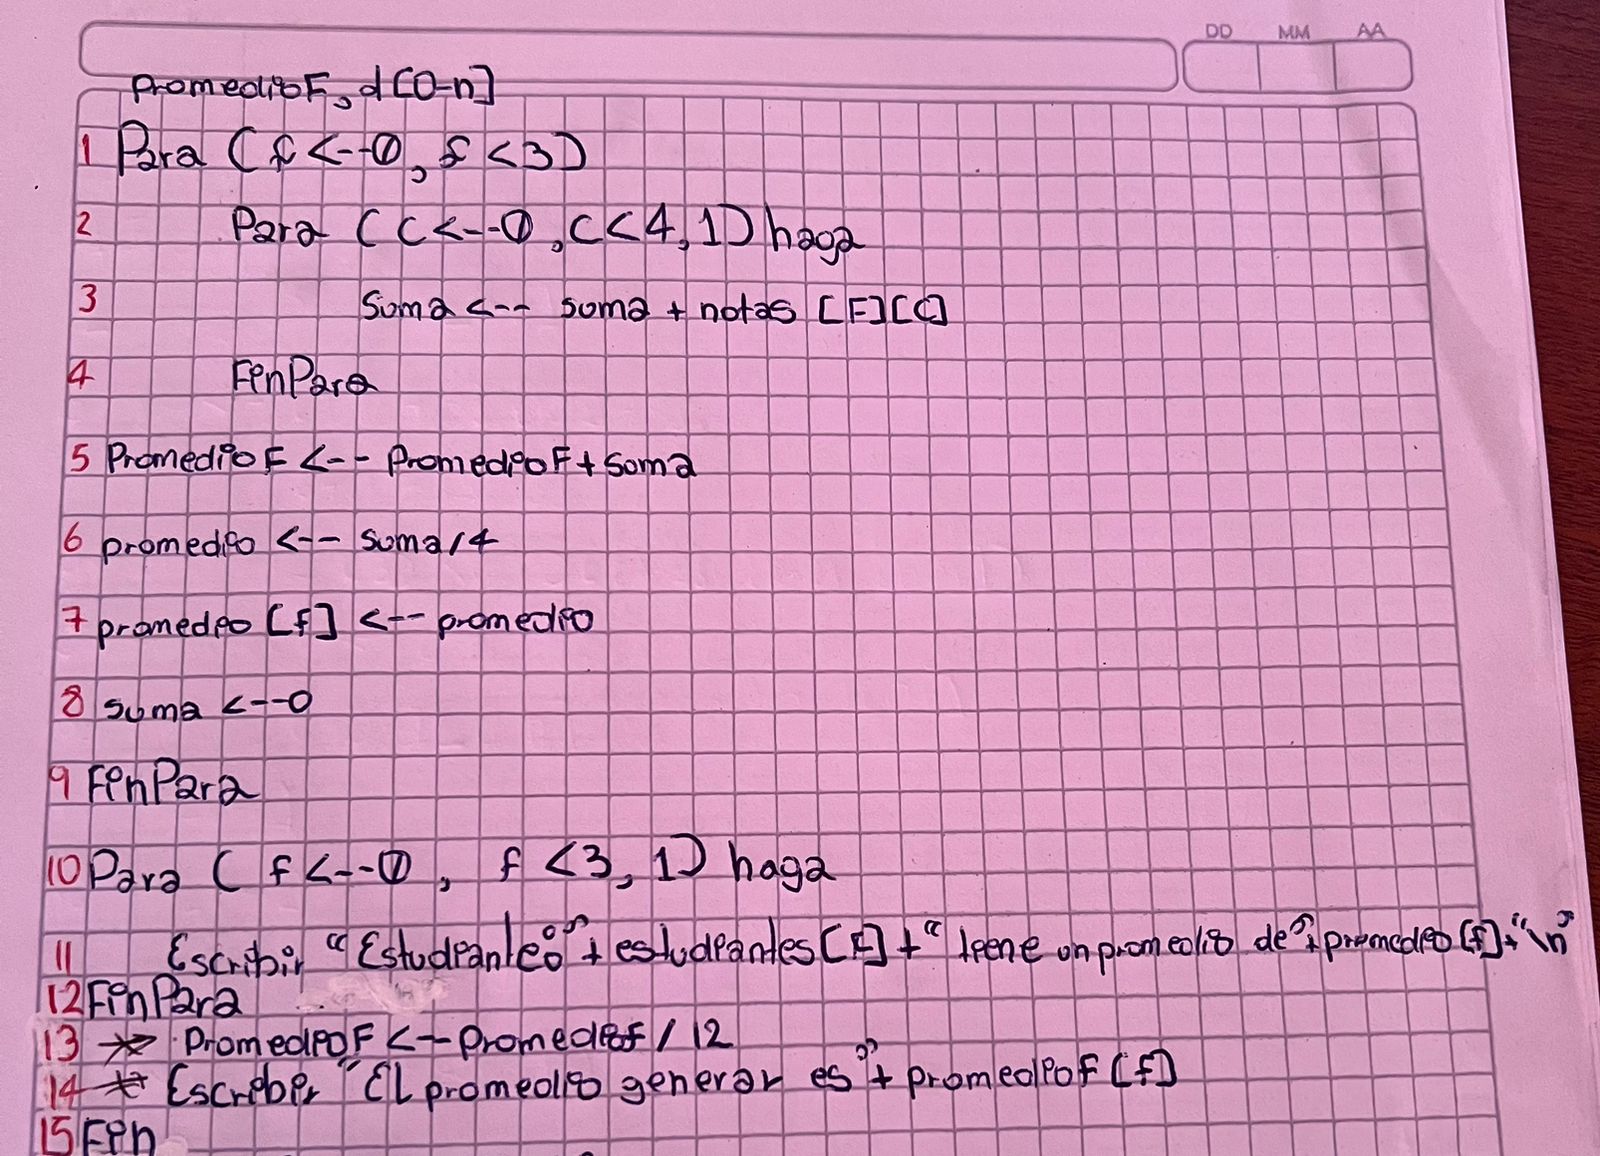 DD MM AA
promedioF, d[0-n]
1 Para (f <--0, f <3)
2 Para (c <--0, c<4, 1) haga
3 Suma <-- suma + notas [F][C]
4 FinPara
5 PromedioF <-- PromedioF + Suma
6 promedio <-- suma/4
7 promedio [f] <-- promedio
8 suma <--0
9 FinPara
10 Para ( f <--0, f <3, 1) haga
11 Escribir "Estudiante:" + estudiantes [F] + " tiene un promedio de" + promedio [f] + "\n"
12 FinPara
13 * PromedioF <-- Promediof / 12
14 * Escribir "El promedio generar es" + promedioF [f]
15 Fin